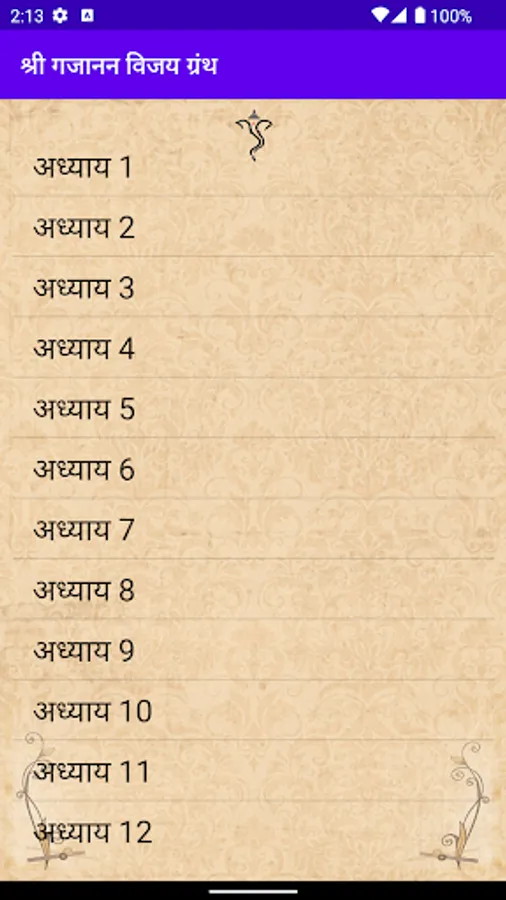 2:13
100%
श्री गजानन विजय ग्रंथ
अध्याय 1
अध्याय 2
अध्याय 3
अध्याय 4
अध्याय 5
अध्याय 6
अध्याय 7
अध्याय 8
अध्याय 9
अध्याय 10
अध्याय 11
अध्याय 12